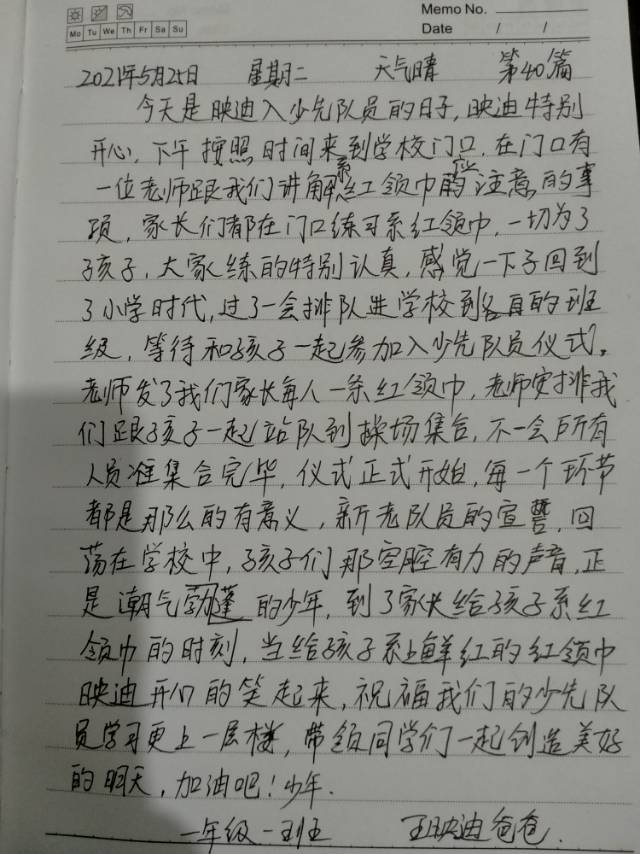 Memo No.
Mo Tu We Th Fr Sa Su
Date / /
2021年5月25日 星期二 天气晴 第40篇
今天是映迪入少先队员的日子，映迪特别
开心，下午按照时间来到学校门口，在门口有
一位老师跟我们讲解系红领巾应注意的事
项，家长们都在门口练习系红领巾，一切为了
孩子，大家练的特别认真，感觉一下子回到
了小学时代，过了一会排队进学校到各自的班
级，等待和孩子一起参加入少先队员仪式。
老师发了我们家长每人一条红领巾，老师安排我
们跟孩子一起站队到操场集合，不一会所有
人员准集合完毕，仪式正式开始，每一个环节
都是那么的有意义，新老队员的宣誓，回
荡在学校中，孩子们那空腔有力的声音，正
是潮气勃蓬的少年，到了家长给孩子系红
领巾的时刻，当给孩子系上鲜红的红领巾
映迪开心的笑起来，祝福我们的少先队
员学习更上一层楼，带领同学们一起创造美好
的明天，加油吧！少年.
一年级一班 王映迪爸爸.